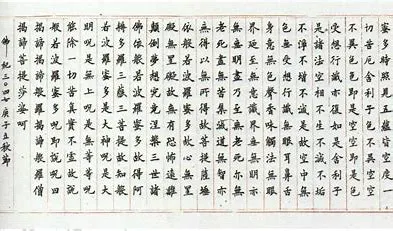 蜜多時照見五蘊皆空度一
切苦厄舍利子色不異空空
不異色色即是空空即是色
受想行識亦復如是舍利子
是諸法空相不生不滅不垢
不淨不增不減是故空中無
色無受想行識無眼耳鼻舌
身意無色聲香味觸法無眼
界乃至無意識界無無明亦
無無明盡乃至無老死亦無
老死盡無苦集滅道無智亦
無得以無所得故菩提薩埵
依般若波羅蜜多故心無罣
礙無罣礙故無有恐怖遠離
顛倒夢想究竟涅槃三世諸
佛依般若波羅蜜多故得阿
耨多羅三藐三菩提故知般
若波羅蜜多是大神呪是大
明呪是無上呪是無等等呪
能除一切苦真實不虛故說
般若波羅蜜多呪即說呪曰
揭諦揭諦般羅揭諦般羅僧
揭諦菩提莎婆訶
佛紀三〇四七庚子立秋節